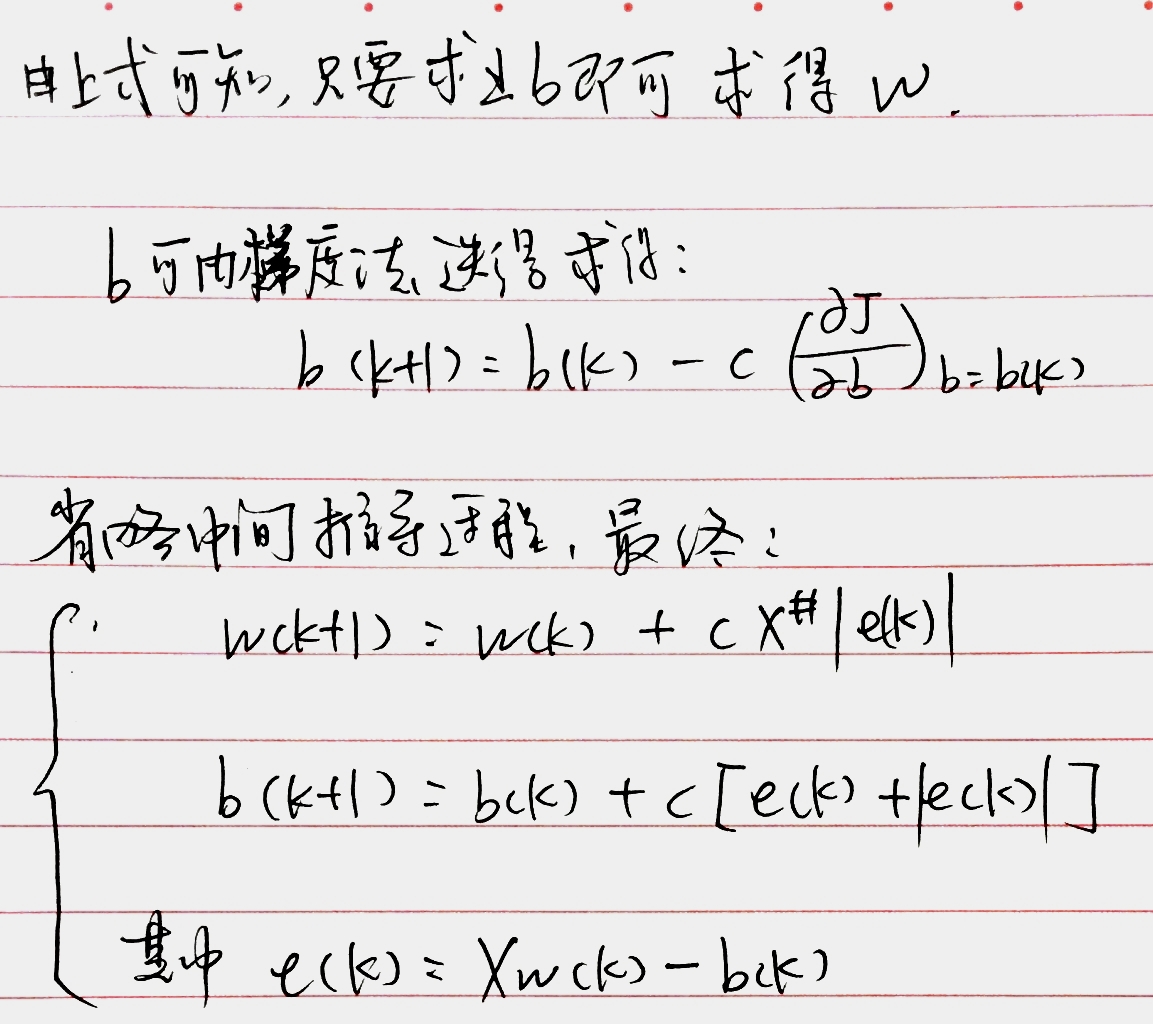 由上式可知,只要求出b即可 求得 w.
b可由梯度法迭得求得:
b(k+1) = b(k) - c (∂J/∂b) b=b(k)
省略中间推导过程,最终:
w(k+1) = w(k) + c X^# |e(k)|
b(k+1) = b(k) + c [e(k) + |e(k)|]
其中 e(k) = Xw(k) - b(k)